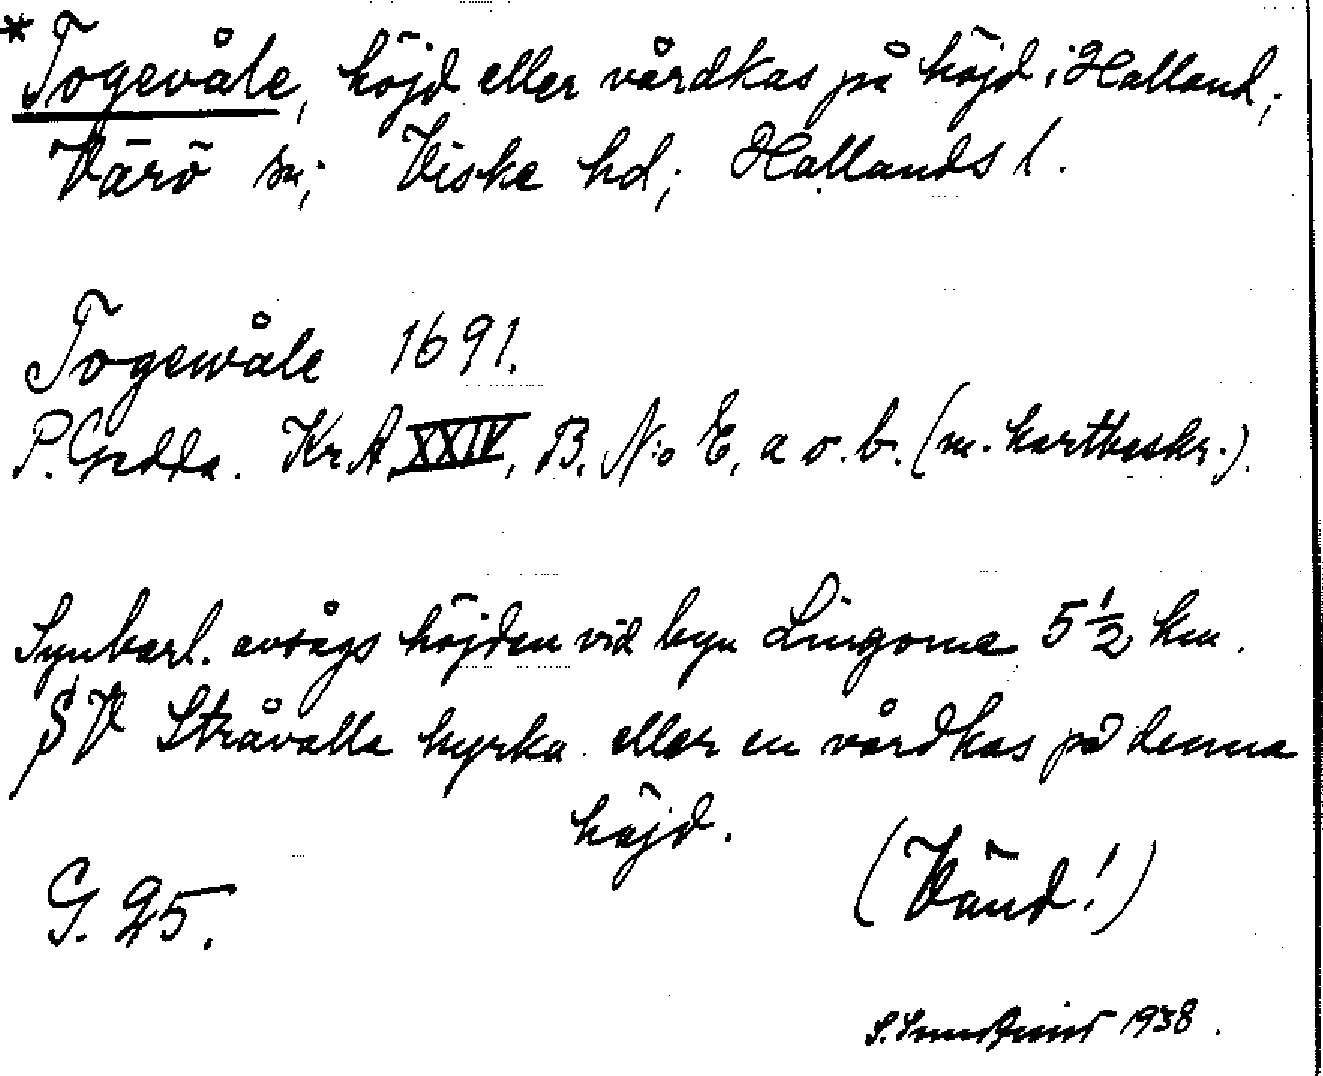 *Togevåle, höjd eller vårdkas på höjd i Halland;
Värö sn; Viske hd; Hallands l.
Togewåle 1691.
P. Gedda. Kr A XXIV, B. N:o E, a o. b. (m. kartbeskr.).
Synbarl. avsågs höjden vid byn Lingome 5 1/2 km.
SV Stråvalla kyrka eller en vårdkas på denna
höjd.
(Vänd!)
G. 25.
1938.